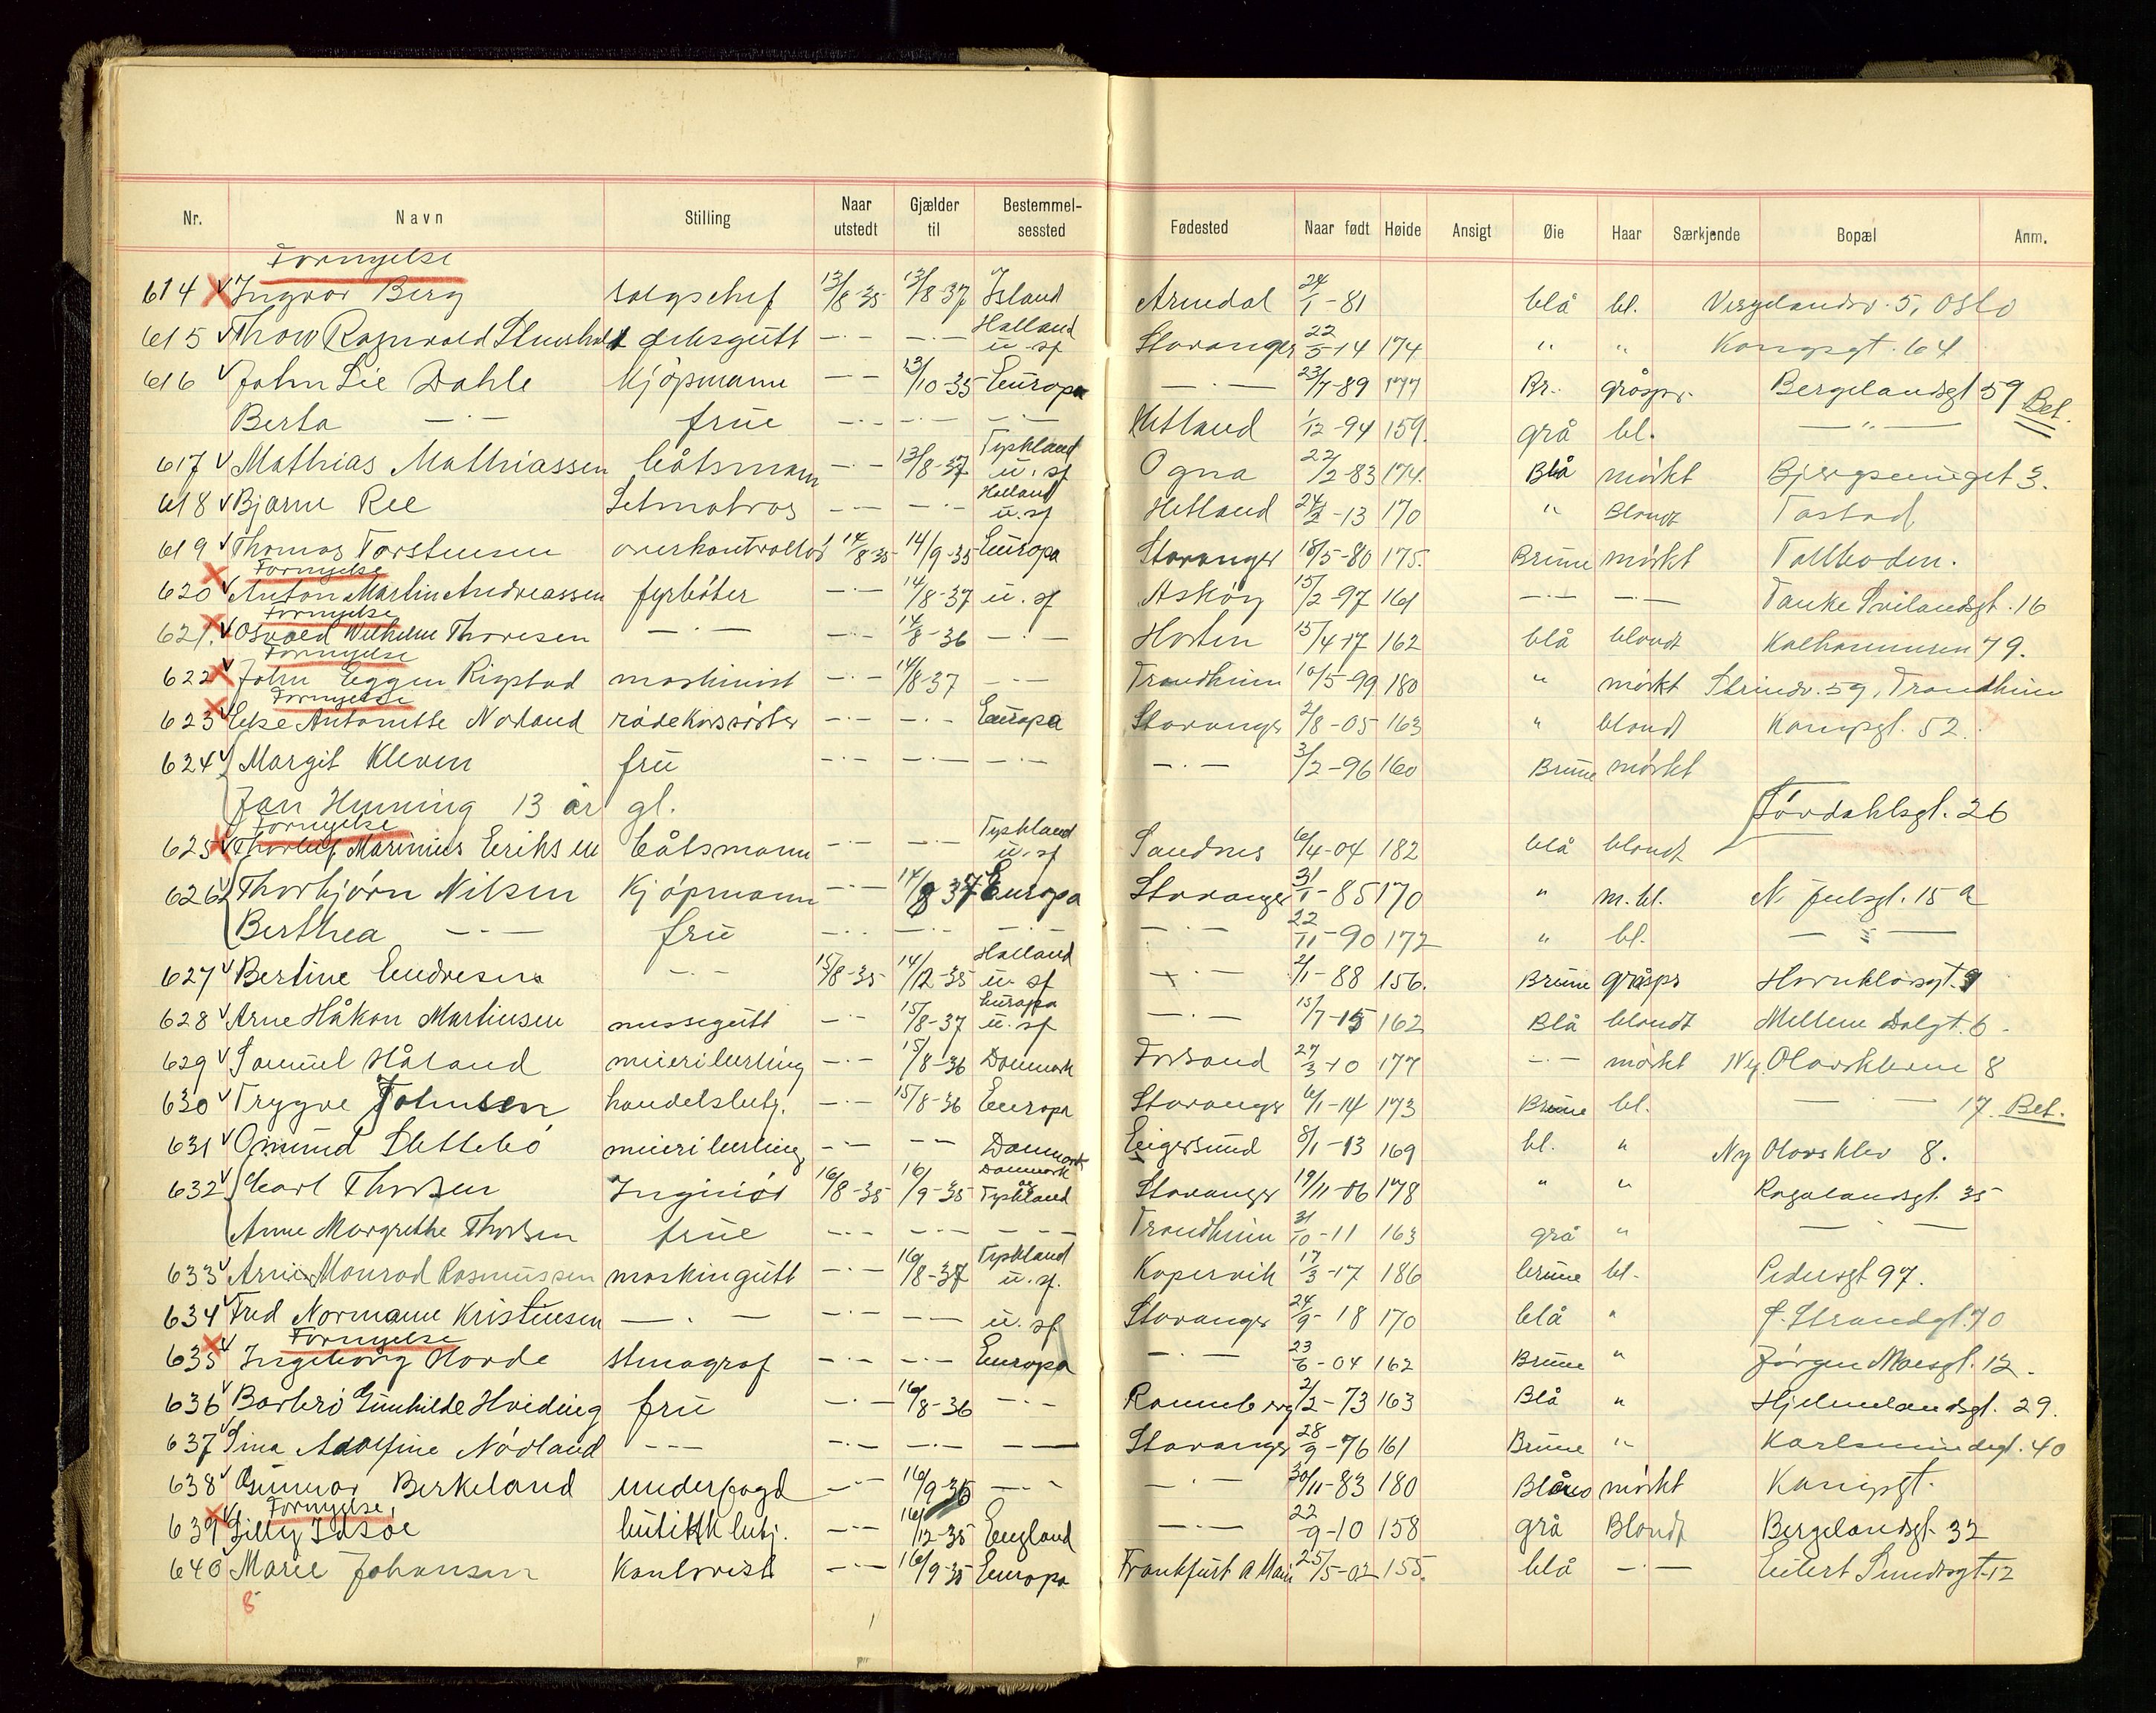 Nr. Navn Stilling Naar utstedt Gjælder til Bestemmelsessted Fødested Naar født Høide Ansigt Øie Haar Særkjende Bopæl Anm.
Fornyelse
614 Ingvar Berg salgschef 13/8-35 13/8-37 Island Arendal 24/1-81 blå bl. Vergelandsv. 5, Oslo
615 Thow Ragnvald deksgutt —·— —·— Holland u. sf Stavanger 22/5-14 174 " " Kongsgt. 64
616 John Lie Dahle Kjøpmann — — 13/10-35 Europa —·— 23/7-89 177 Br. gråspr. Bergelandsgt 59 Bet.
Berta —·— frue —·— —·— —·— Hetland 1/12-94 159. grå bl. —"—
617 Mathias Mathiassen båtsmann —·— 13/8-37 Tyskland u. sf Ogna 22/2-83 174. Blå mørkt 3.
618 Bjarne Ree Letmatros — — —·— Holland u. sf Hetland 24/2-13 170 " Blondt Tastad
619 Thomas Torstensen overkontrollør 14/8-35 14/9-35 Europa Stavanger 18/5-80 175. Brune mørkt Tollboden.
Fornyelse
620 Anton Martin Andreassen fyrbøter —·— 14/8-37 u. sf Askøy 15/2-97 161 —·— —·— Tanke Svilandsgt. 16
Fornyelse
621. Osvald Wilhelm Thoresen —·— —·— 14/8-36 —·— Horten 15/4-17 162 blå blondt Kalhammeren 79.
Fornyelse
622 John Eggen Rigstad maskinist —·— 14/8-37 — — Trondheim 10/5-99 180 " mørkt Strindv. 59, Trondheim
Fornyelse
623 Else Antonette Norland rødekorssøster —·— —·— Europa Stavanger 2/8-05 163 " blondt Kongsgt. 52.
624 Margit Kleven fru —·— —·— —·— —·— 3/2-96 160 Brune mørkt
Jan Henning 13 år gl. Tordahlsgt. 26
Fornyelse
625 Thorleif Marinius Eriksen båtsmann —·— —·— Tyskland u. sf Sandnes 6/4-04 182 blå blondt
626 Thorbjørn Nilsen Kjøpmann —·— 14/8 37 Europa Stavanger 31/1-85 170 " m.bl. N. Juelsgt. 15 a
Berthea —·— fru —·— —·— —·— —·— 22/11-90 172 " bl. — " —
627 Bertine Endresen —·— 15/8-35 14/12-35 Holland u. sf —·— 2/1-88 156. Brune gråspr Hornklovsgt. 9
628 Arne Håkon Martinsen messegutt —·— 15/8-37 Europa u. sf —·— 15/7-15 162 Blå blondt Mellem Dalgt. 6
629 Samuel Håland meierilærling —·— 15/8-36 Danmark Forsand 27/3-10 177 —·— mørkt Ny Olavskleve 8
630 Trygve Johnsen handelsbetj. —·— 15/8-36 Europa Stavanger 6/1-14 173 Brune bl. —·— 17. Bet.
631 Omund Slettebø meierilærling —·— — — Danmark Eigersund 8/1-13 169 bl. " Ny Olavsklev 8.
632 Carl Thorsen Ingeniør 16/8-35 16/9-35 Danmark og Tyskland Stavanger 19/11-06 178 " " Rogalandsgt. 35
Anne Margrethe Thorsen frue —·— —·— — — — Trondheim 31/10-11 163 grå " —·—
633 Arne Monrad Rasmussen maskingutt —·— 16/8-37 Tyskland u. sf. Kopervik 17/3-17 186 brune bl. Pedersgt 97.
634 Fred Normann Kristensen —·— —·— — — u. sf Stavanger 24/9-18 170 blå " Strandgt. 70
Fornyelse
635 Ingeborg Hovde stenograf —·— —·— Europa —·— 23/6-04 162 Brune " Jørgen Moesgt. 12.
636 Barbro Gunhilde Hviding fru —·— 16/8-36 —·— Renneberg 2/2-73 163 Blå " Hjelmelandsgt. 29.
637 Sina Adolfine Nødland — — — —·— —·— — — Stavanger 28/9-76 161 Brune " Karlsminnegt. 40
638 Gunnar Berkeland underfogd —·— 16/9-35 —·— —·— 30/11-83 180 mørkt Kongsgt.
Fornyelse
639 Lilly Idsøe butikkbetj. —·— 16/12-35 England —·— 22/9-10 158 grå Blondt Bergelandsgt. 32
640 Marie Johansen Kontorist —·— 16/9-35 Europa Frankfurt a Main 25/5-02 155. blå —·— Eilert Sundtsgt. 12
8